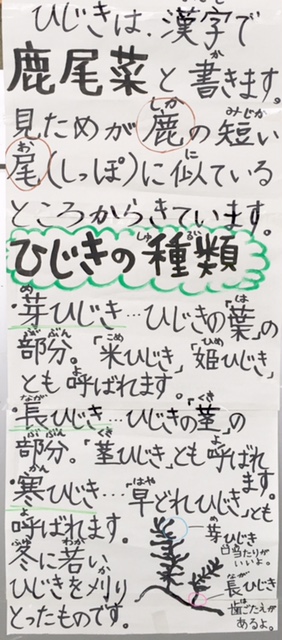 ひじきは、漢字で
鹿尾菜と書きます。
見ためが鹿の短い
尾(しっぽ)に似ている
ところからきています。
ひじきの種類
・芽ひじき…ひじきの「葉」の
部分。「米ひじき」「姫ひじき」
とも呼ばれます。
・長ひじき…ひじきの「茎」の
部分。「茎ひじき」とも呼ばれ
ます。
・寒ひじき…「早どれひじき」とも
呼ばれます。
冬に若い
ひじきを刈り
とったものです。
芽ひじき
口当たりが
いいよ。
長ひじき
歯ごたえが
あるよ。